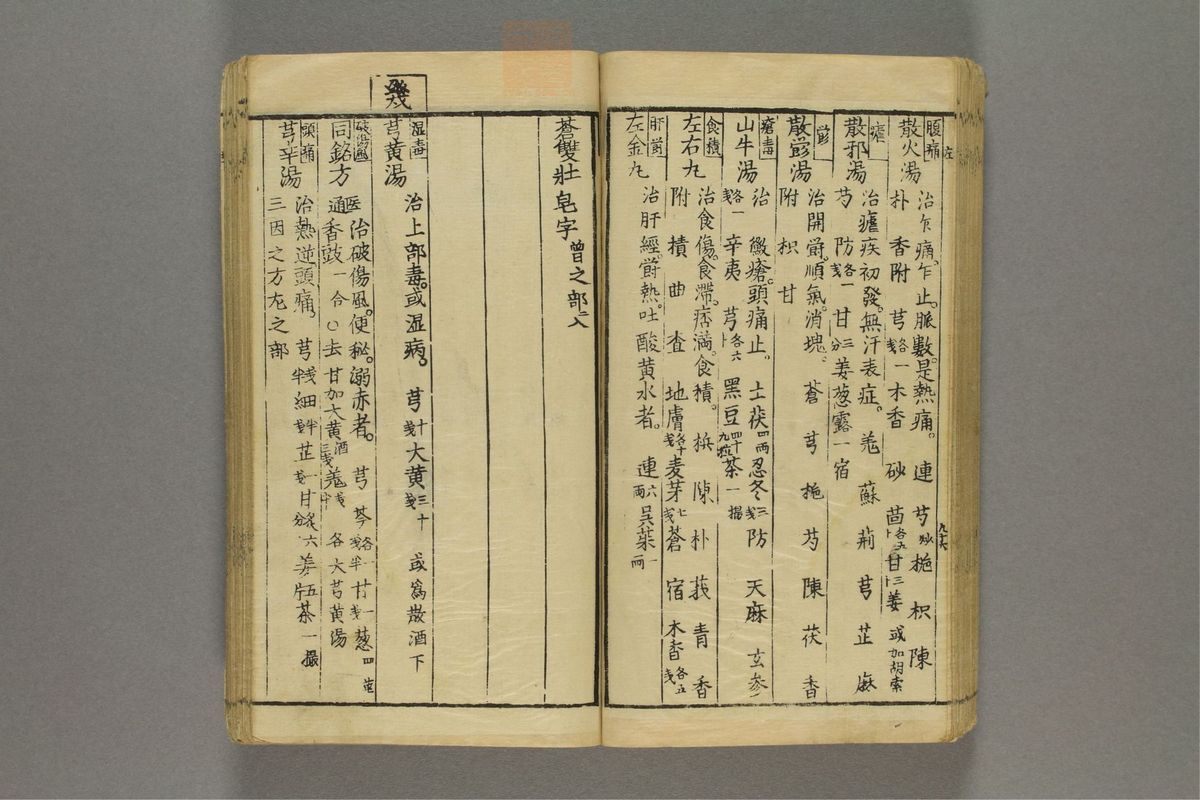 腹痛
散火湯
治乍痛。乍止。脈數。是熱痛。 連 芍炒 梔 枳 陳
朴 香附 芎各一戔 木香 砂 茴各五卜 甘三卜 姜 或加胡索
瘧
散邪湯
治瘧疾初發。無汗表症。 羗 蘇 荊 芎 芷 麻
芍 防各一戔 甘三分 姜 葱 露一宿
欝
散欝湯
治開欝。順氣。消塊。 蒼 芎 梔 芍 陳 茯 香
附 枳 甘
瘡毒
山牛湯
治 瘡。頭痛止。 土茯四兩 忍冬三戔 防 天麻 玄参
各一戔 辛夷 芎各六卜 黑豆四十九粒 茶一撮
食積
左右丸
治食傷。食滯。痞滿。食積。 梹 陳 朴 莪 青 香
附 積 曲 査 地膚各十戔 麦芽七戔 蒼 宿 木香各五戔
肝欝
左金丸
治肝經。欝熱。吐酸黄水者。 連六兩 吳茱一兩
蒼雙壯皂字曾之部二入
幾
湿毒
芎黄湯
治上部毒。或湿病。 芎十戔 大黄三十戔 或爲散酒下
破傷風
同銘方
医 治破傷風。便秘。溺赤者。 芎 芩各半戔 甘一戔 葱四
通 香豉一合 去甘加大黄酒三戔 羗 各大芎黄湯
頭痛
芎辛湯
治熱逆頭痛 芎戔半 細半戔 芷一戔 甘炙六分 姜五片 茶一撮
三因之方左之部